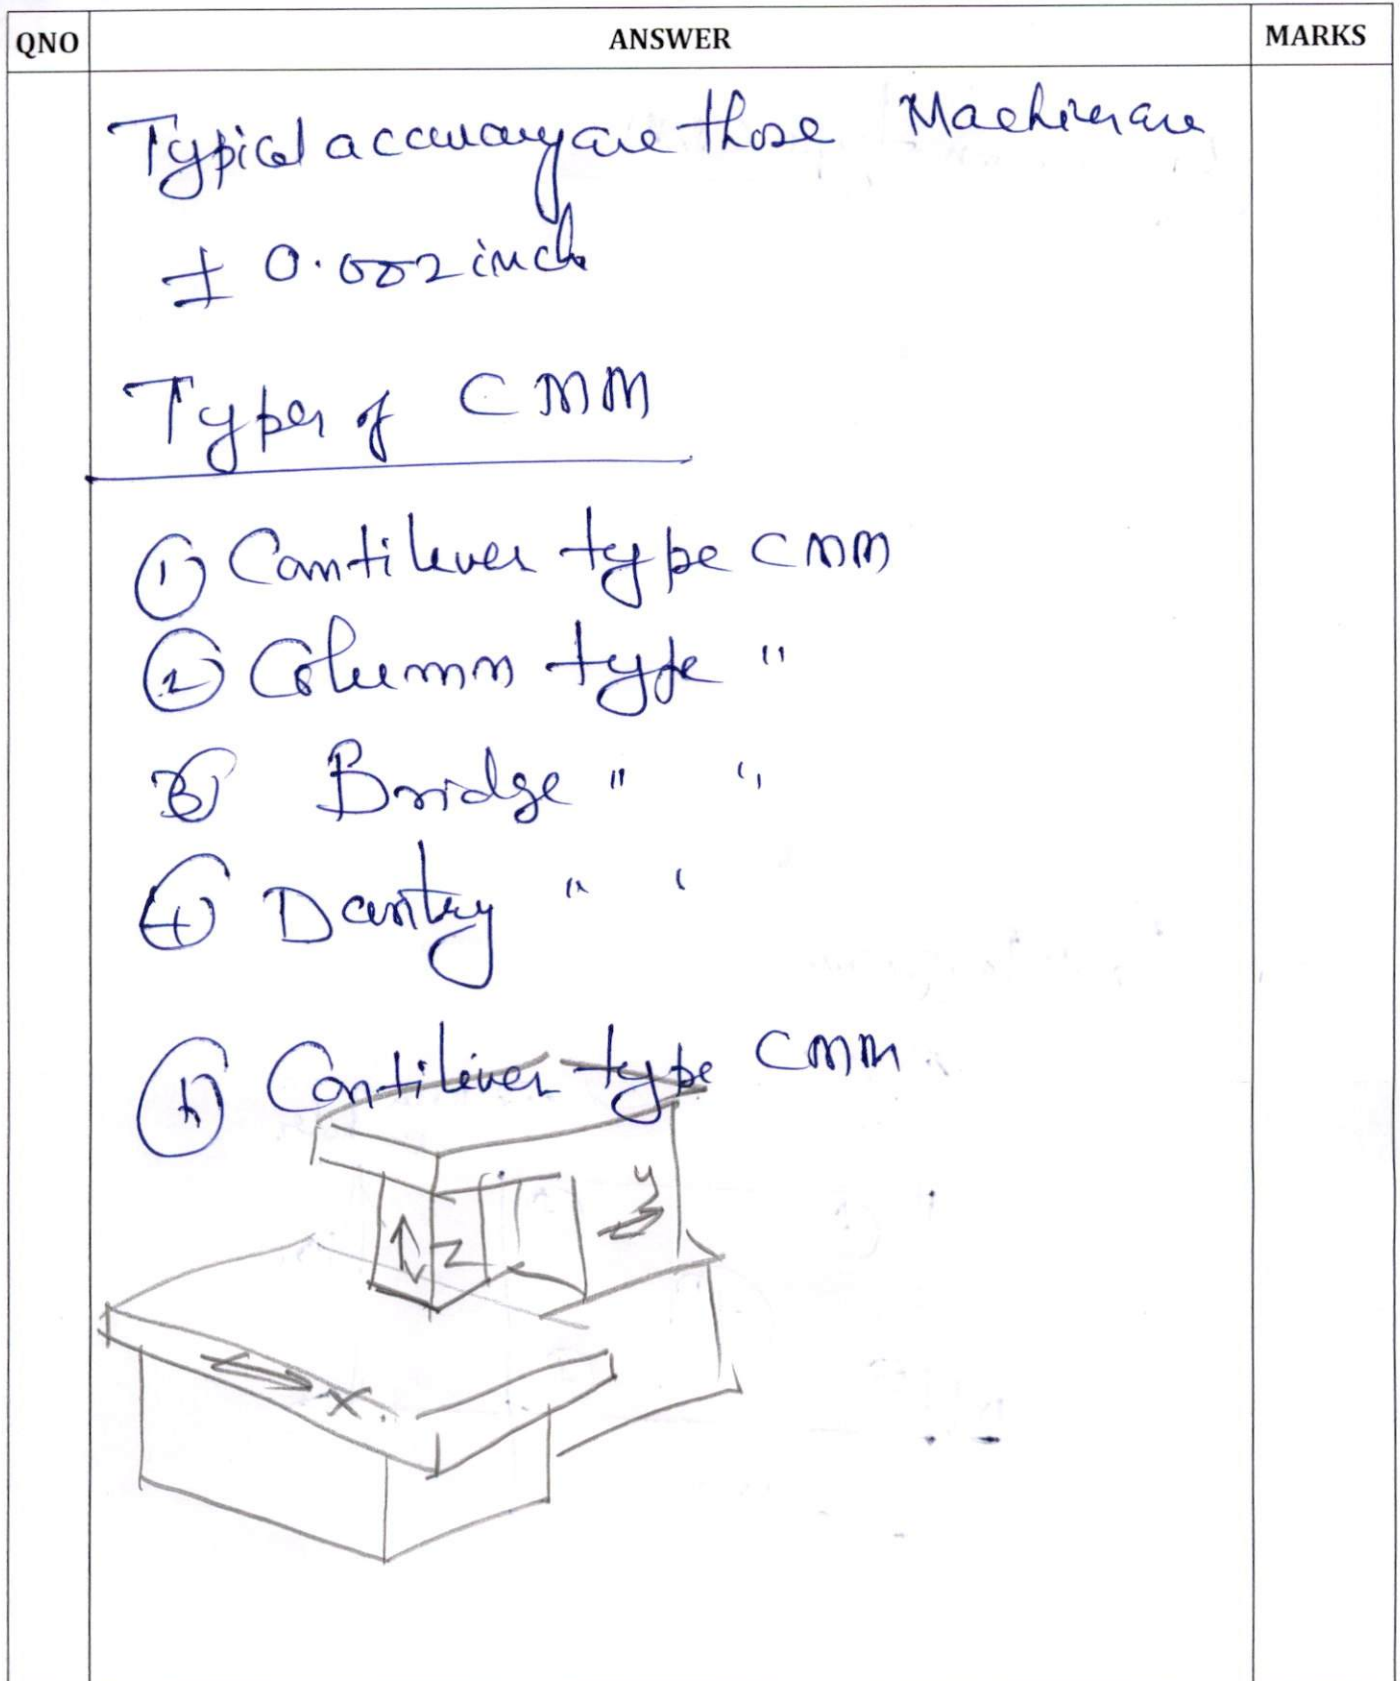 QNO ANSWER MARKS
Typical accuracy are those Machines are
± 0.002 inch
Types of CMM
① Cantilever type CMM
② Column type "
③ Bridge " "
④ Dantry " "
① Cantilever type CMM
y
Z
X